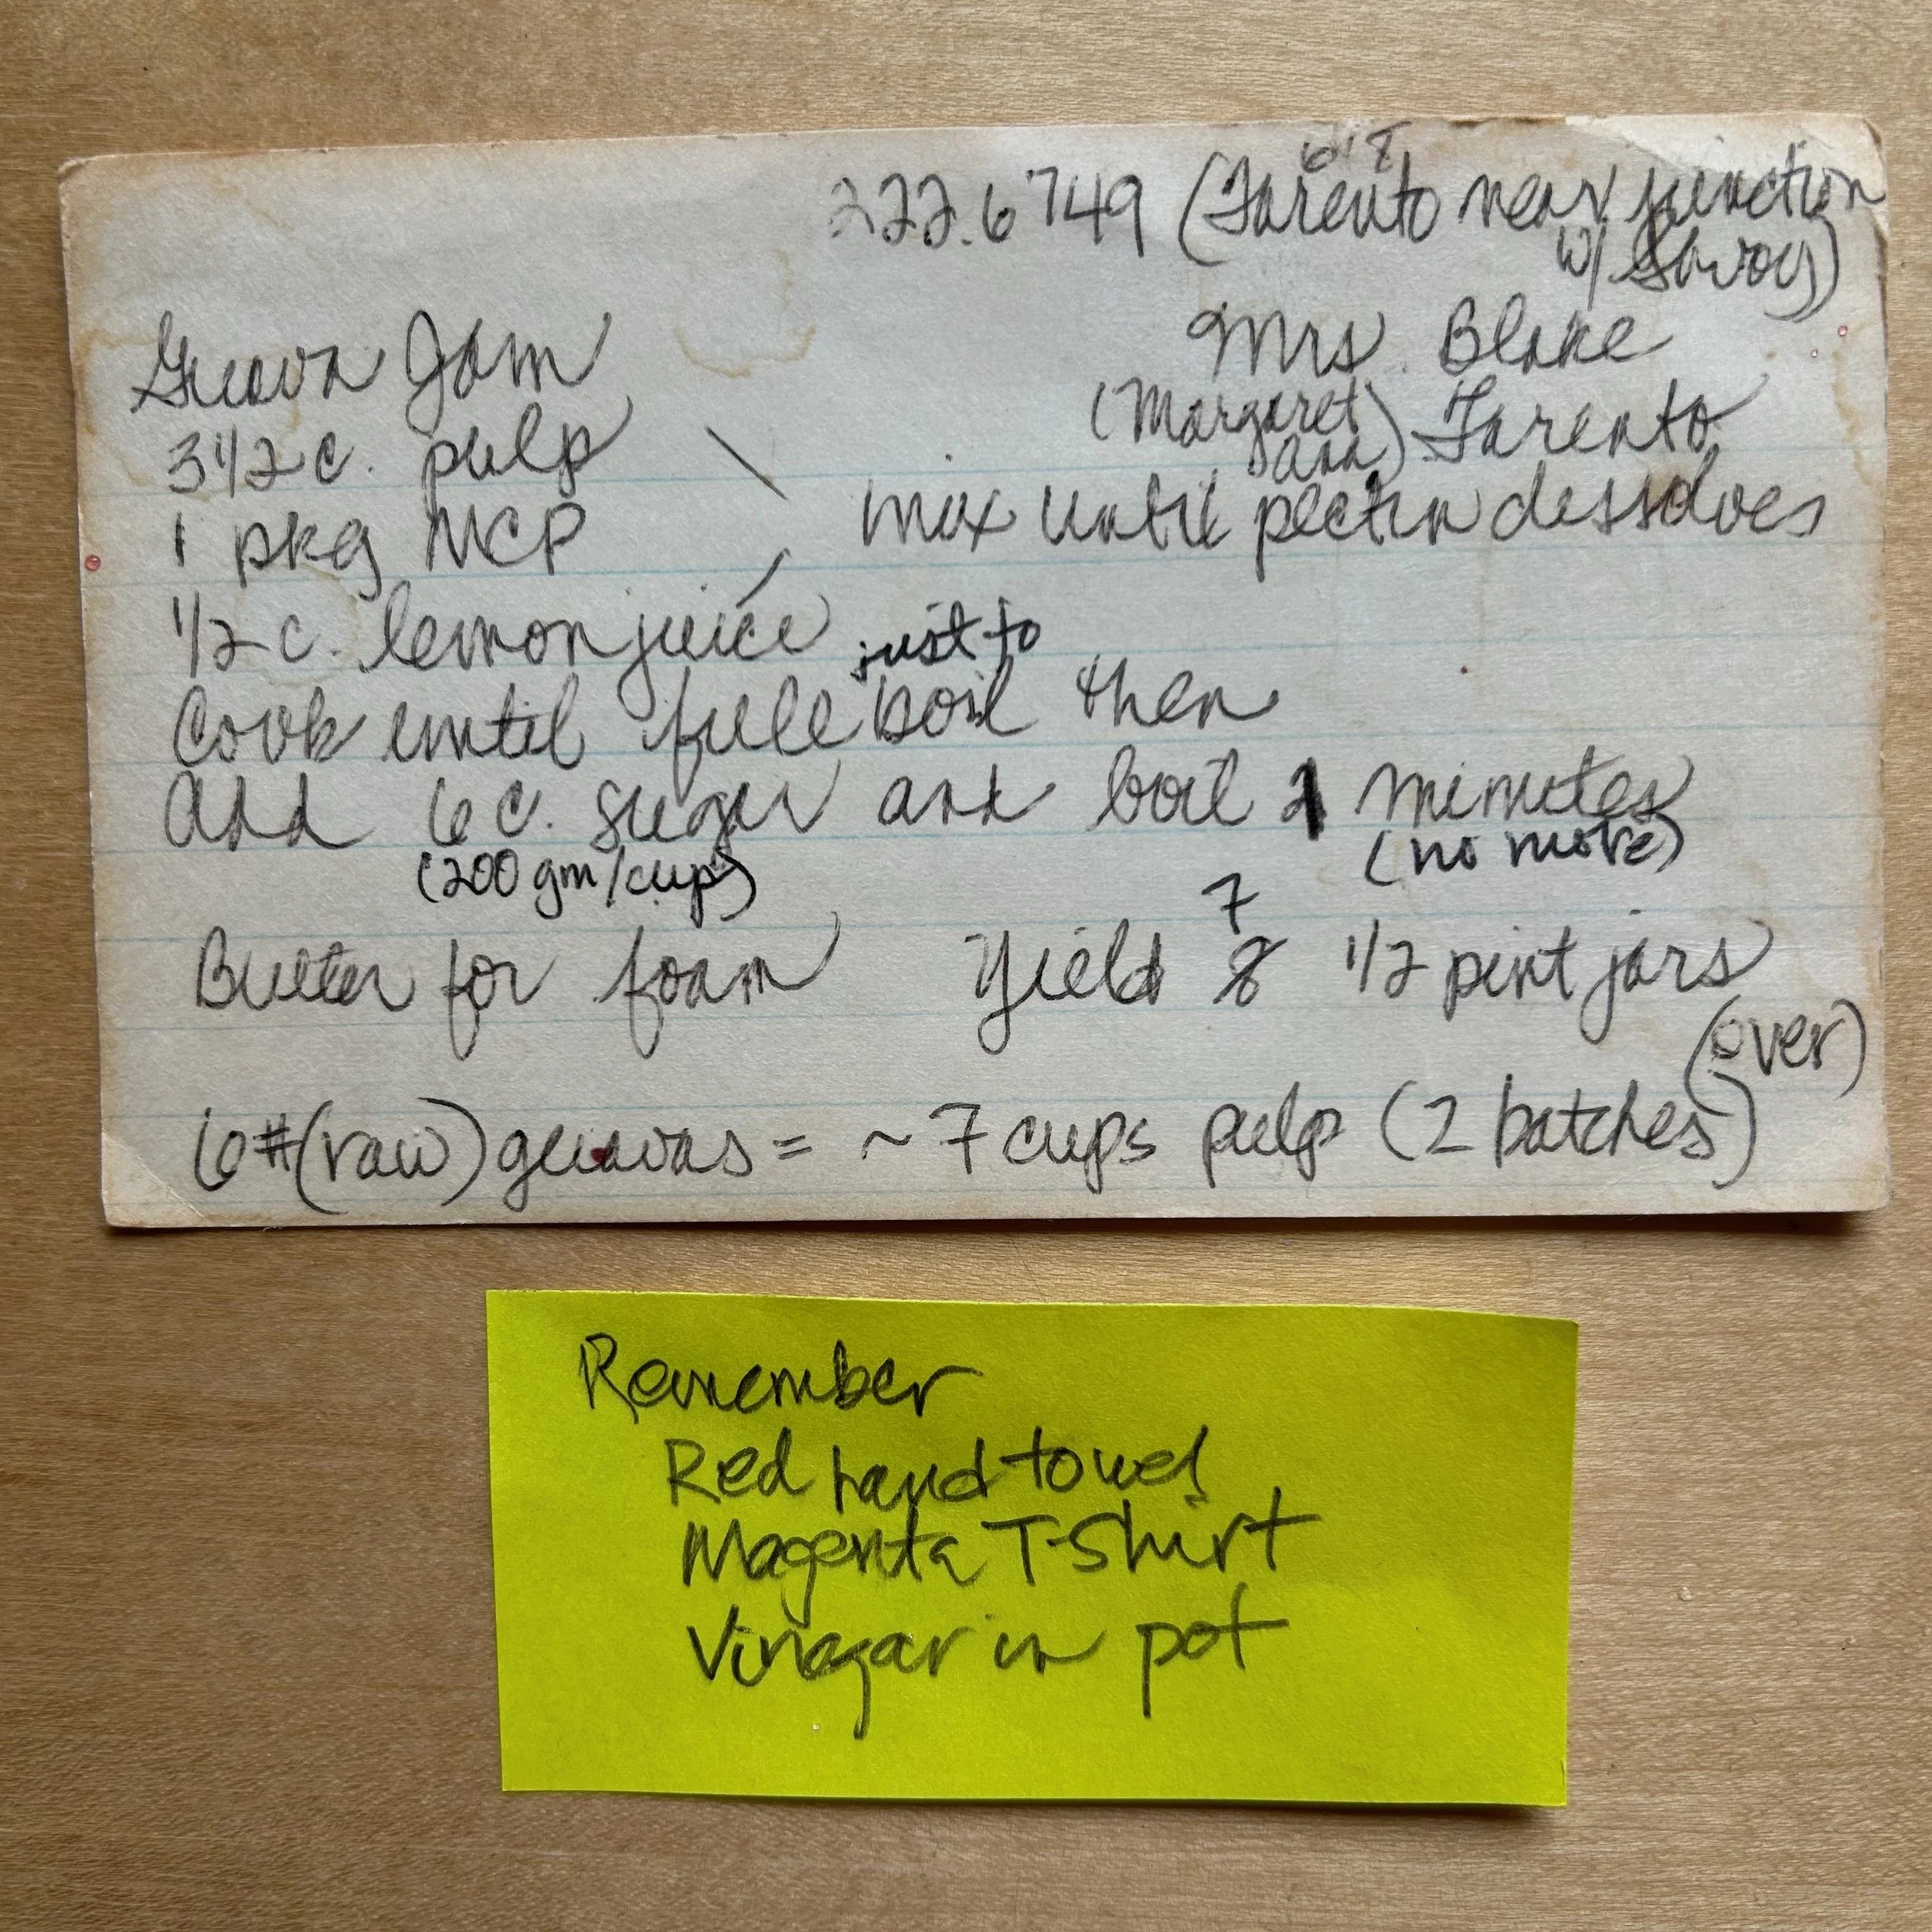 618
222.6749 (Tarento near junction
w/ Savoy)
Guava Jam
Mrs. Blake
(Margaret Ann) Tarento
3 1/2 c. pulp
1 pkg MCP
mix until pectin dessolves
1/2 c. lemon juice
just to
Cook until full boil then
add 6 c. sugar and boil 1 minutes
(200 gm/cup)
(no more)
7
Butter for foam Yield 8 1/2 pint jars
(over)
6# (raw) guavas = ~7 cups pulp (2 batches)
Remember
Red hand towel
Magenta T-Shirt
Vinegar in pot